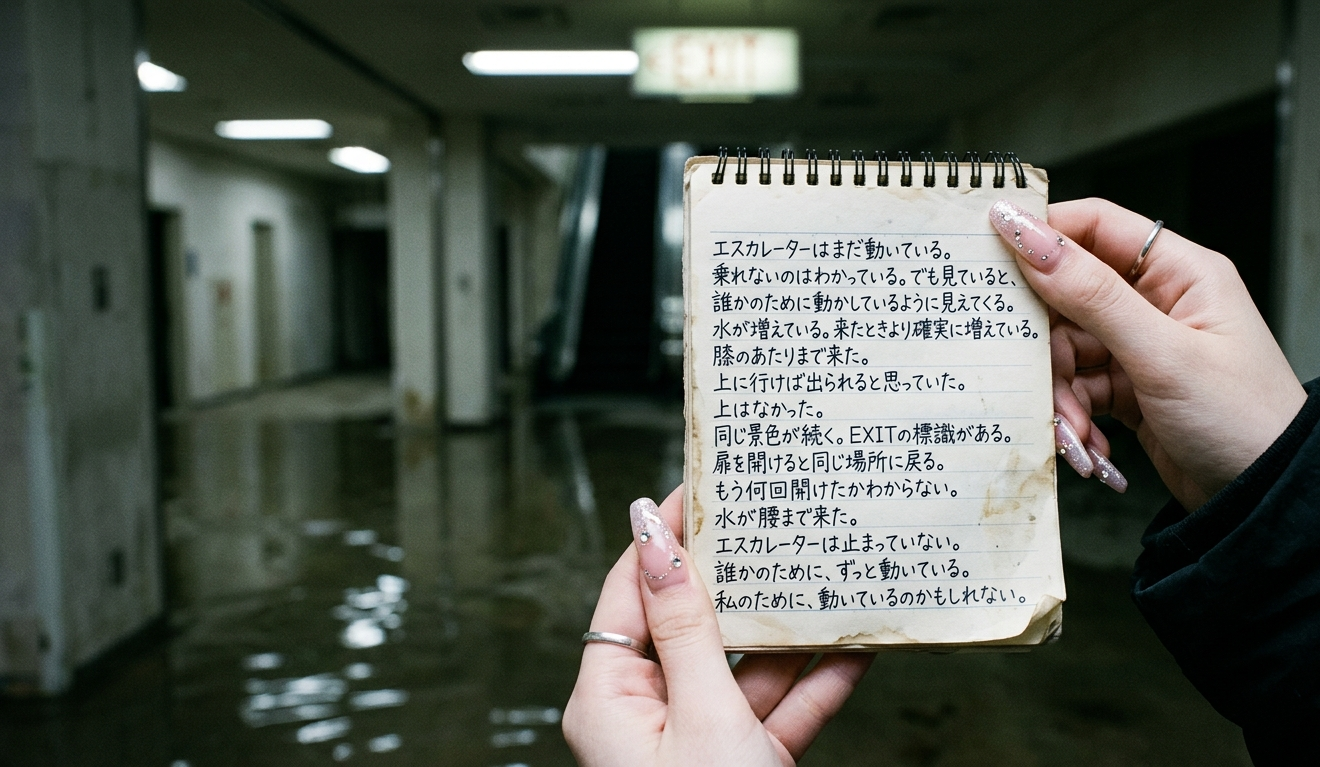 EXIT
エスカレーターはまだ動いている。
乗れないのはわかっている。でも見ていると、
誰かのために動かしているように見えてくる。
水が増えている。来たときより確実に増えている。
膝のあたりまで来た。
上に行けば出られると思っていた。
上はなかった。
同じ景色が続く。EXITの標識がある。
扉を開けると同じ場所に戻る。
もう何回開けたかわからない。
水が腰まで来た。
エスカレーターは止まっていない。
誰かのために、ずっと動いている。
私のために、動いているのかもしれない。